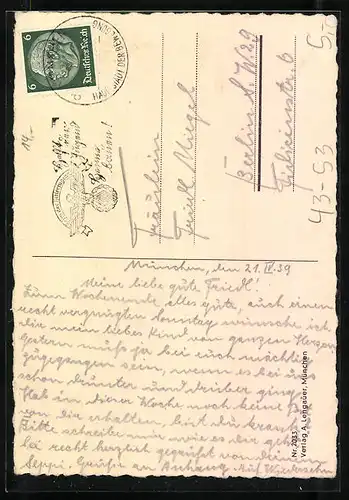 Deutsches Reich
6
6
HAUPTSTADT DER BEWEGUNG
Helft
der
Jugend
Heime
bauen!
14.-
Fräulein
Friedl Miegel
Berlin S.W 29
43-93
München, den 21. IV. 39
Meine liebe gute Friedl!
Zum Wochenende alles gute, auch einen
recht vergnügten Sonntag wünsche ich
dir mein liebes Kind von ganzen Herzen,
Gestern muss ja bei euch mächtig
zugegangen sein, wenn es bei uns
schon drunter und drüber ging.
Hab in dieser Woche noch keine Post
von dir erhalten, bist du krank?
Bitte schreibe mir wie es dir geht.
Sei recht herzlich gegrüßt von deinem
Seppi. Grüße an Anhang. Auf Wiedersehn
Nr. 2033
Verlag A. Lengauer, München